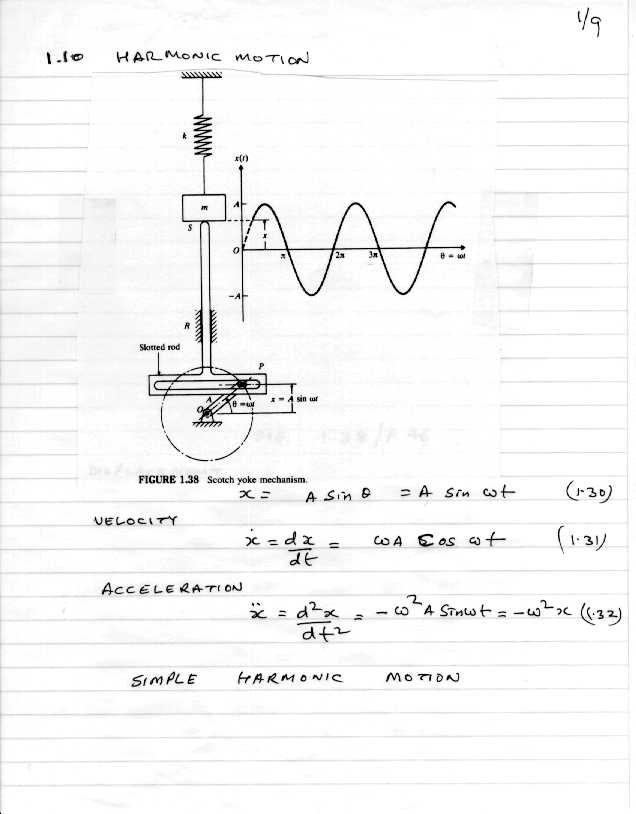 1/9
1.10 HARMONIC MOTION
k
x(t)
m
A
S
x
O
π 2π 3π θ = ωt
−A
R
Slotted rod
P
A
θ = ωt
x = A sin ωt
O
FIGURE 1.38 Scotch yoke mechanism.
x = A sin θ = A sin ωt (1.30)
VELOCITY
ẋ = dx/dt = ωA cos ωt (1.31)
ACCELERATION
ẍ = d²x/dt² = −ω²A sinωt = −ω²x (1.32)
SIMPLE HARMONIC MOTION